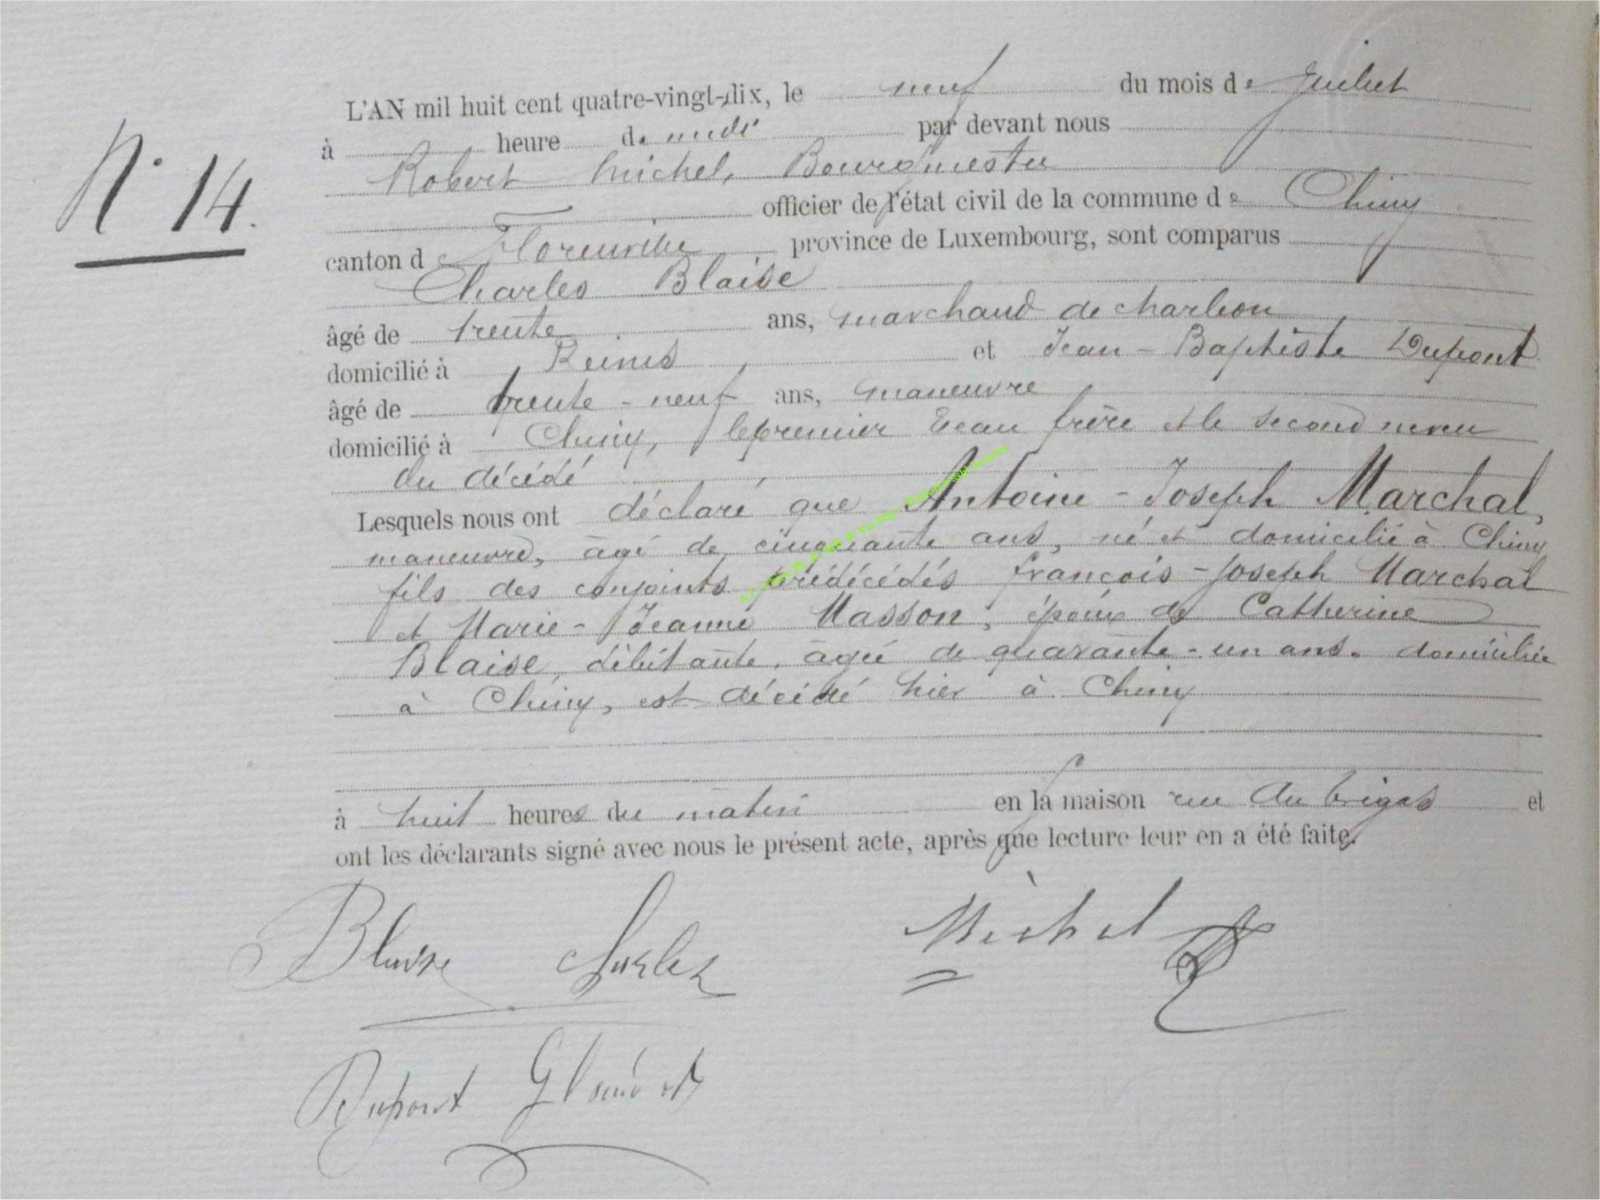 L'AN mil huit cent quatre-vingt-dix, le neuf du mois de Juillet
à heure de midi par devant nous
N° 14.
Robert Michel, Bourgmestre
officier de l'état civil de la commune de Chiny
canton de Florenville province de Luxembourg, sont comparus
Charles Blaise
âgé de trente ans, marchand de charbon
domicilié à Reims et Jean-Baptiste Dupont
âgé de trente-neuf ans, maneuvre
domicilié à Chiny, le premier beau frère et le second neveu
du décédé
Lesquels nous ont déclaré que Antoine-Joseph Marchal,
maneuvre, âgé de cinquante ans, né et domicilié à Chiny
fils des conjoints prédécédés françois-Joseph Marchal
et Marie-Jeanne Masson, époux de Catherine
Blaise, débitante, âgée de quarante-un ans. domiciliée
à Chiny, est décédé hier à Chiny
à huit heures du matin en la maison rue du et
ont les déclarants signé avec nous le présent acte, après que lecture leur en a été faite.
Blaise Charles Michel R
Dupont